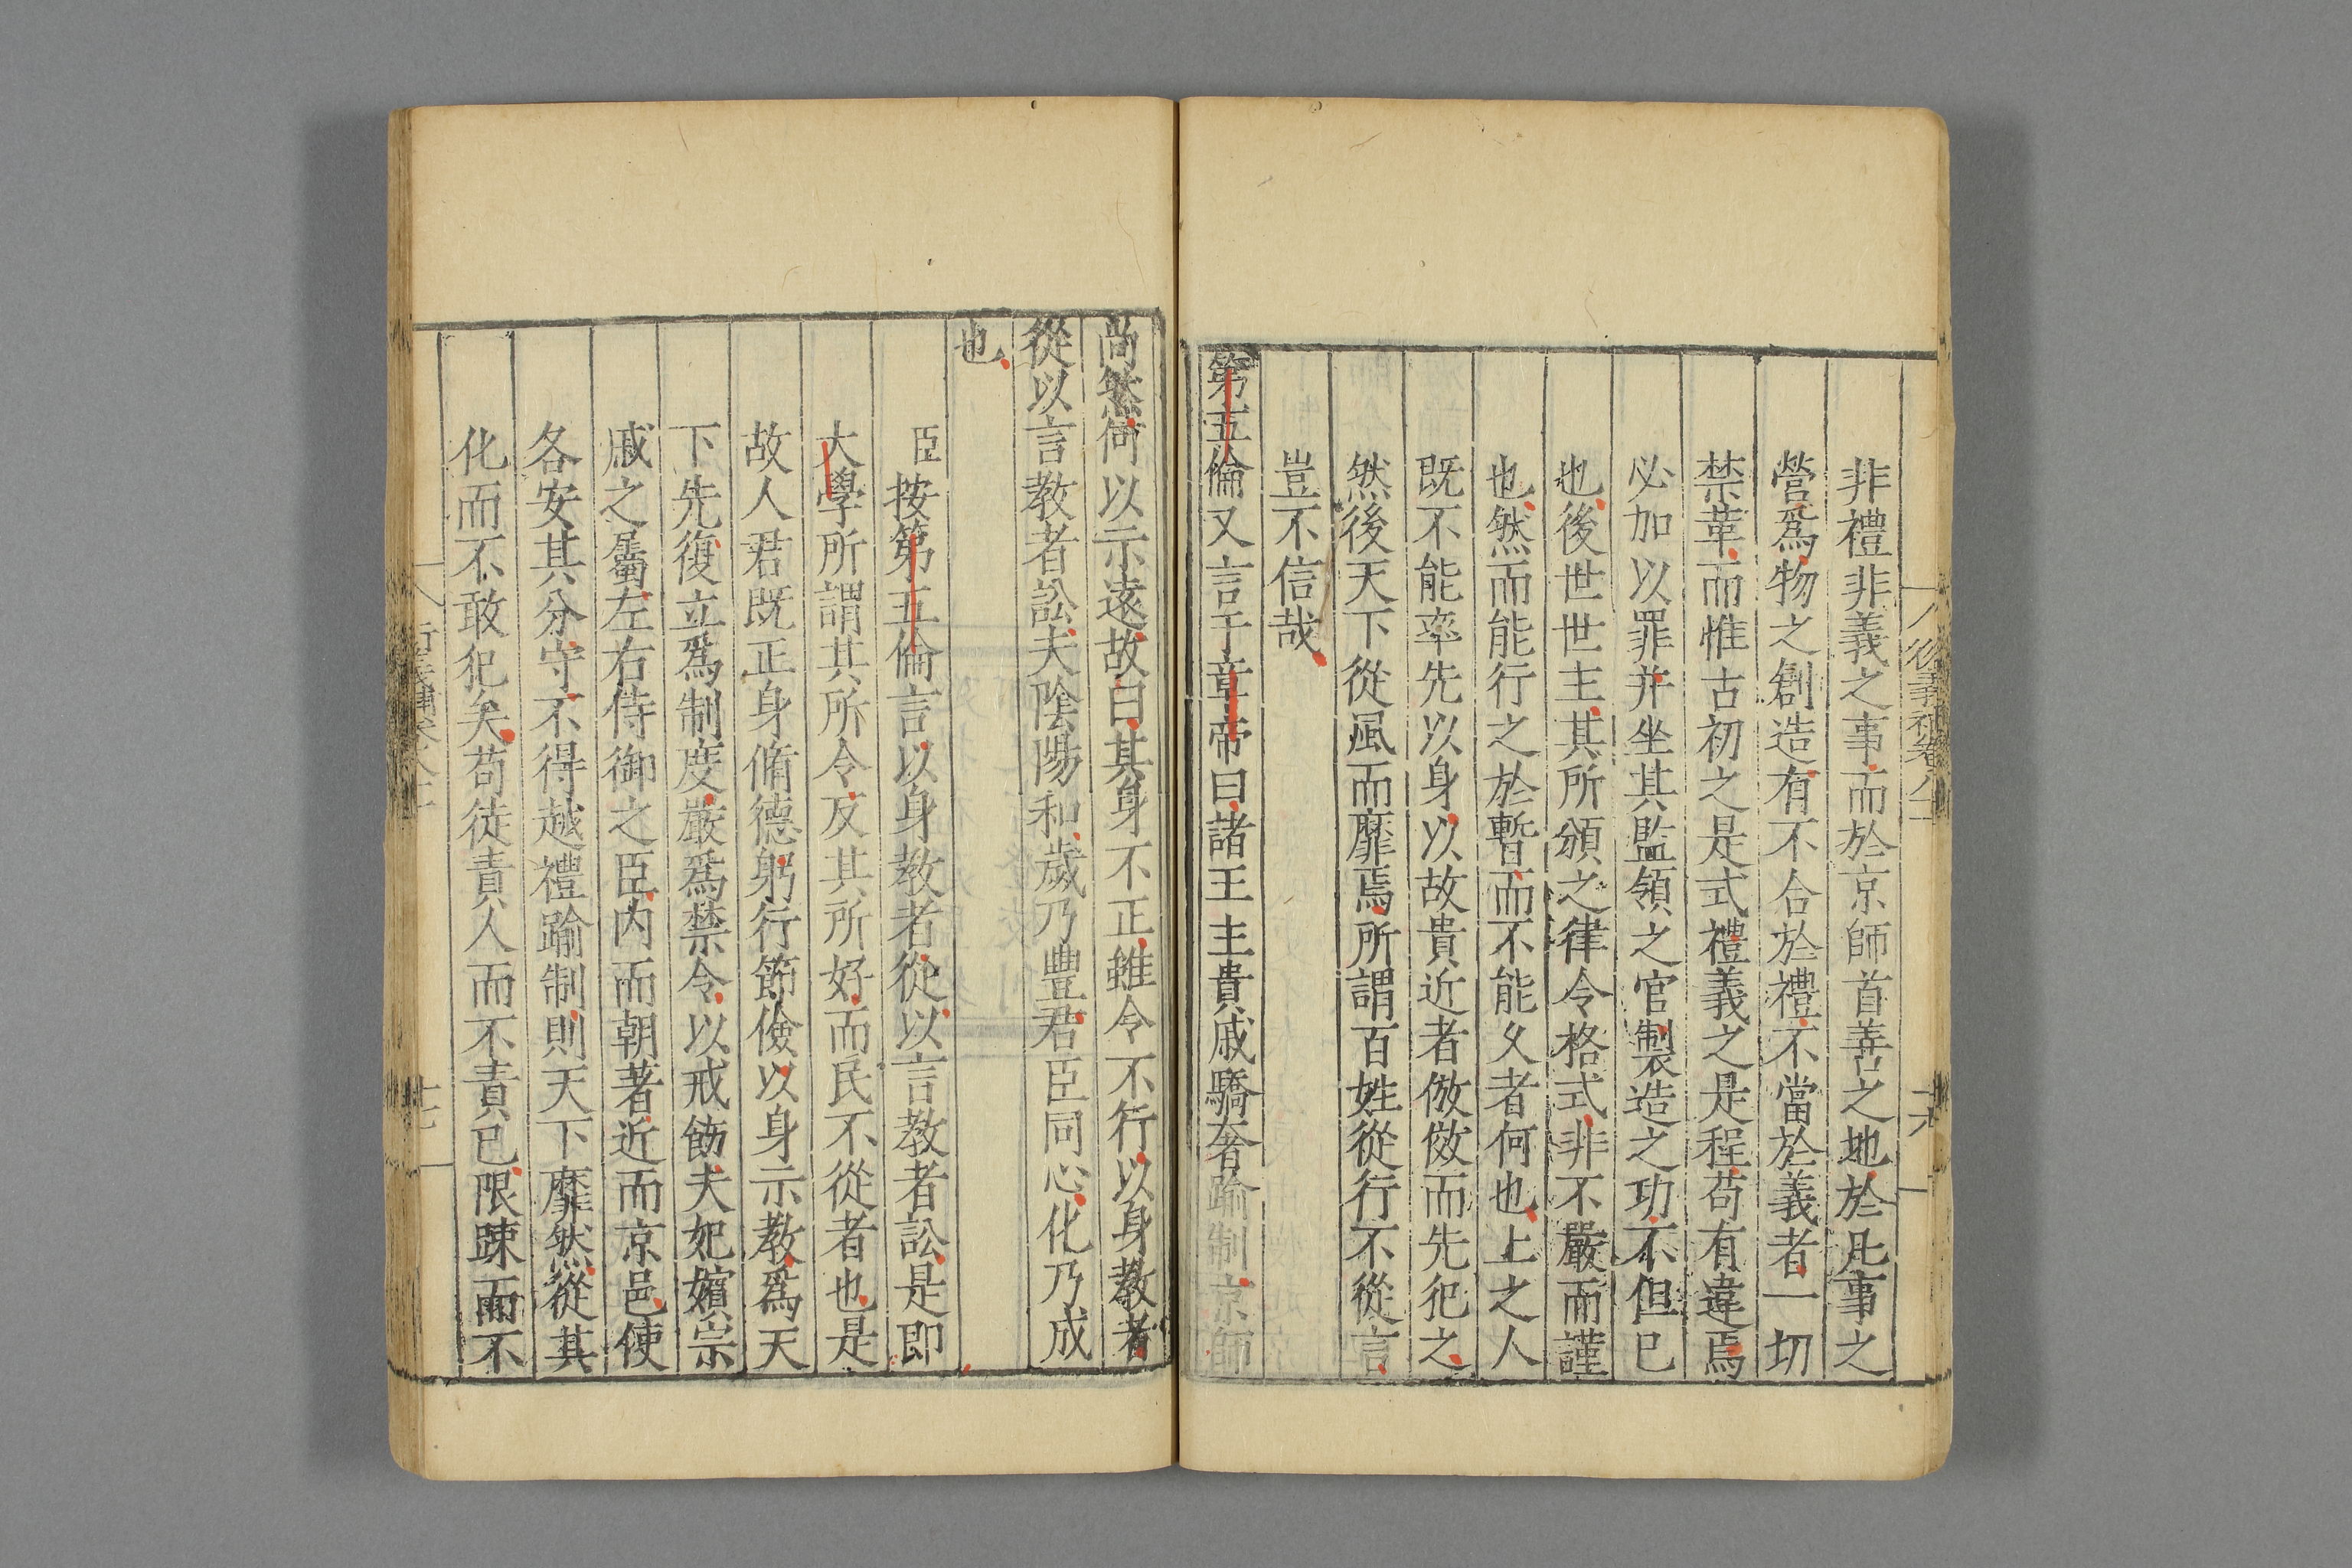 非禮非義之事而於京師首善之地於凡事之
營爲物之創造有不合於禮不當於義者一切
禁革而惟古初之是式禮義之是程苟有違焉
必加以罪并坐其監領之官製造之功不但已
也後世世主其所頒之律令格式非不嚴而謹
也然而能行之於暫而不能久者何也上之人
既不能率先以身以故貴近者倣傚而先犯之
然後天下從風而靡焉所謂百姓從行不從言
豈不信哉
第五倫又言于章帝曰諸王主貴戚驕奢踰制京師
尚然何以示遠故曰其身不正雖令不行以身教者
從以言教者訟夫陰陽和歲乃豊君臣同心化乃成
也
臣按第五倫言以身教者從以言教者訟是即
大學所謂其所令反其所好而民不從者也是
故人君既正身脩德躬行節儉以身示教爲天
下先復立爲制度嚴爲禁令以戒飭夫妃嬪宗
戚之屬左右侍御之臣内而朝著近而京邑使
各安其分守不得越禮踰制則天下靡然從其
化而不敢犯矣苟徒責人而不責已限踈而不